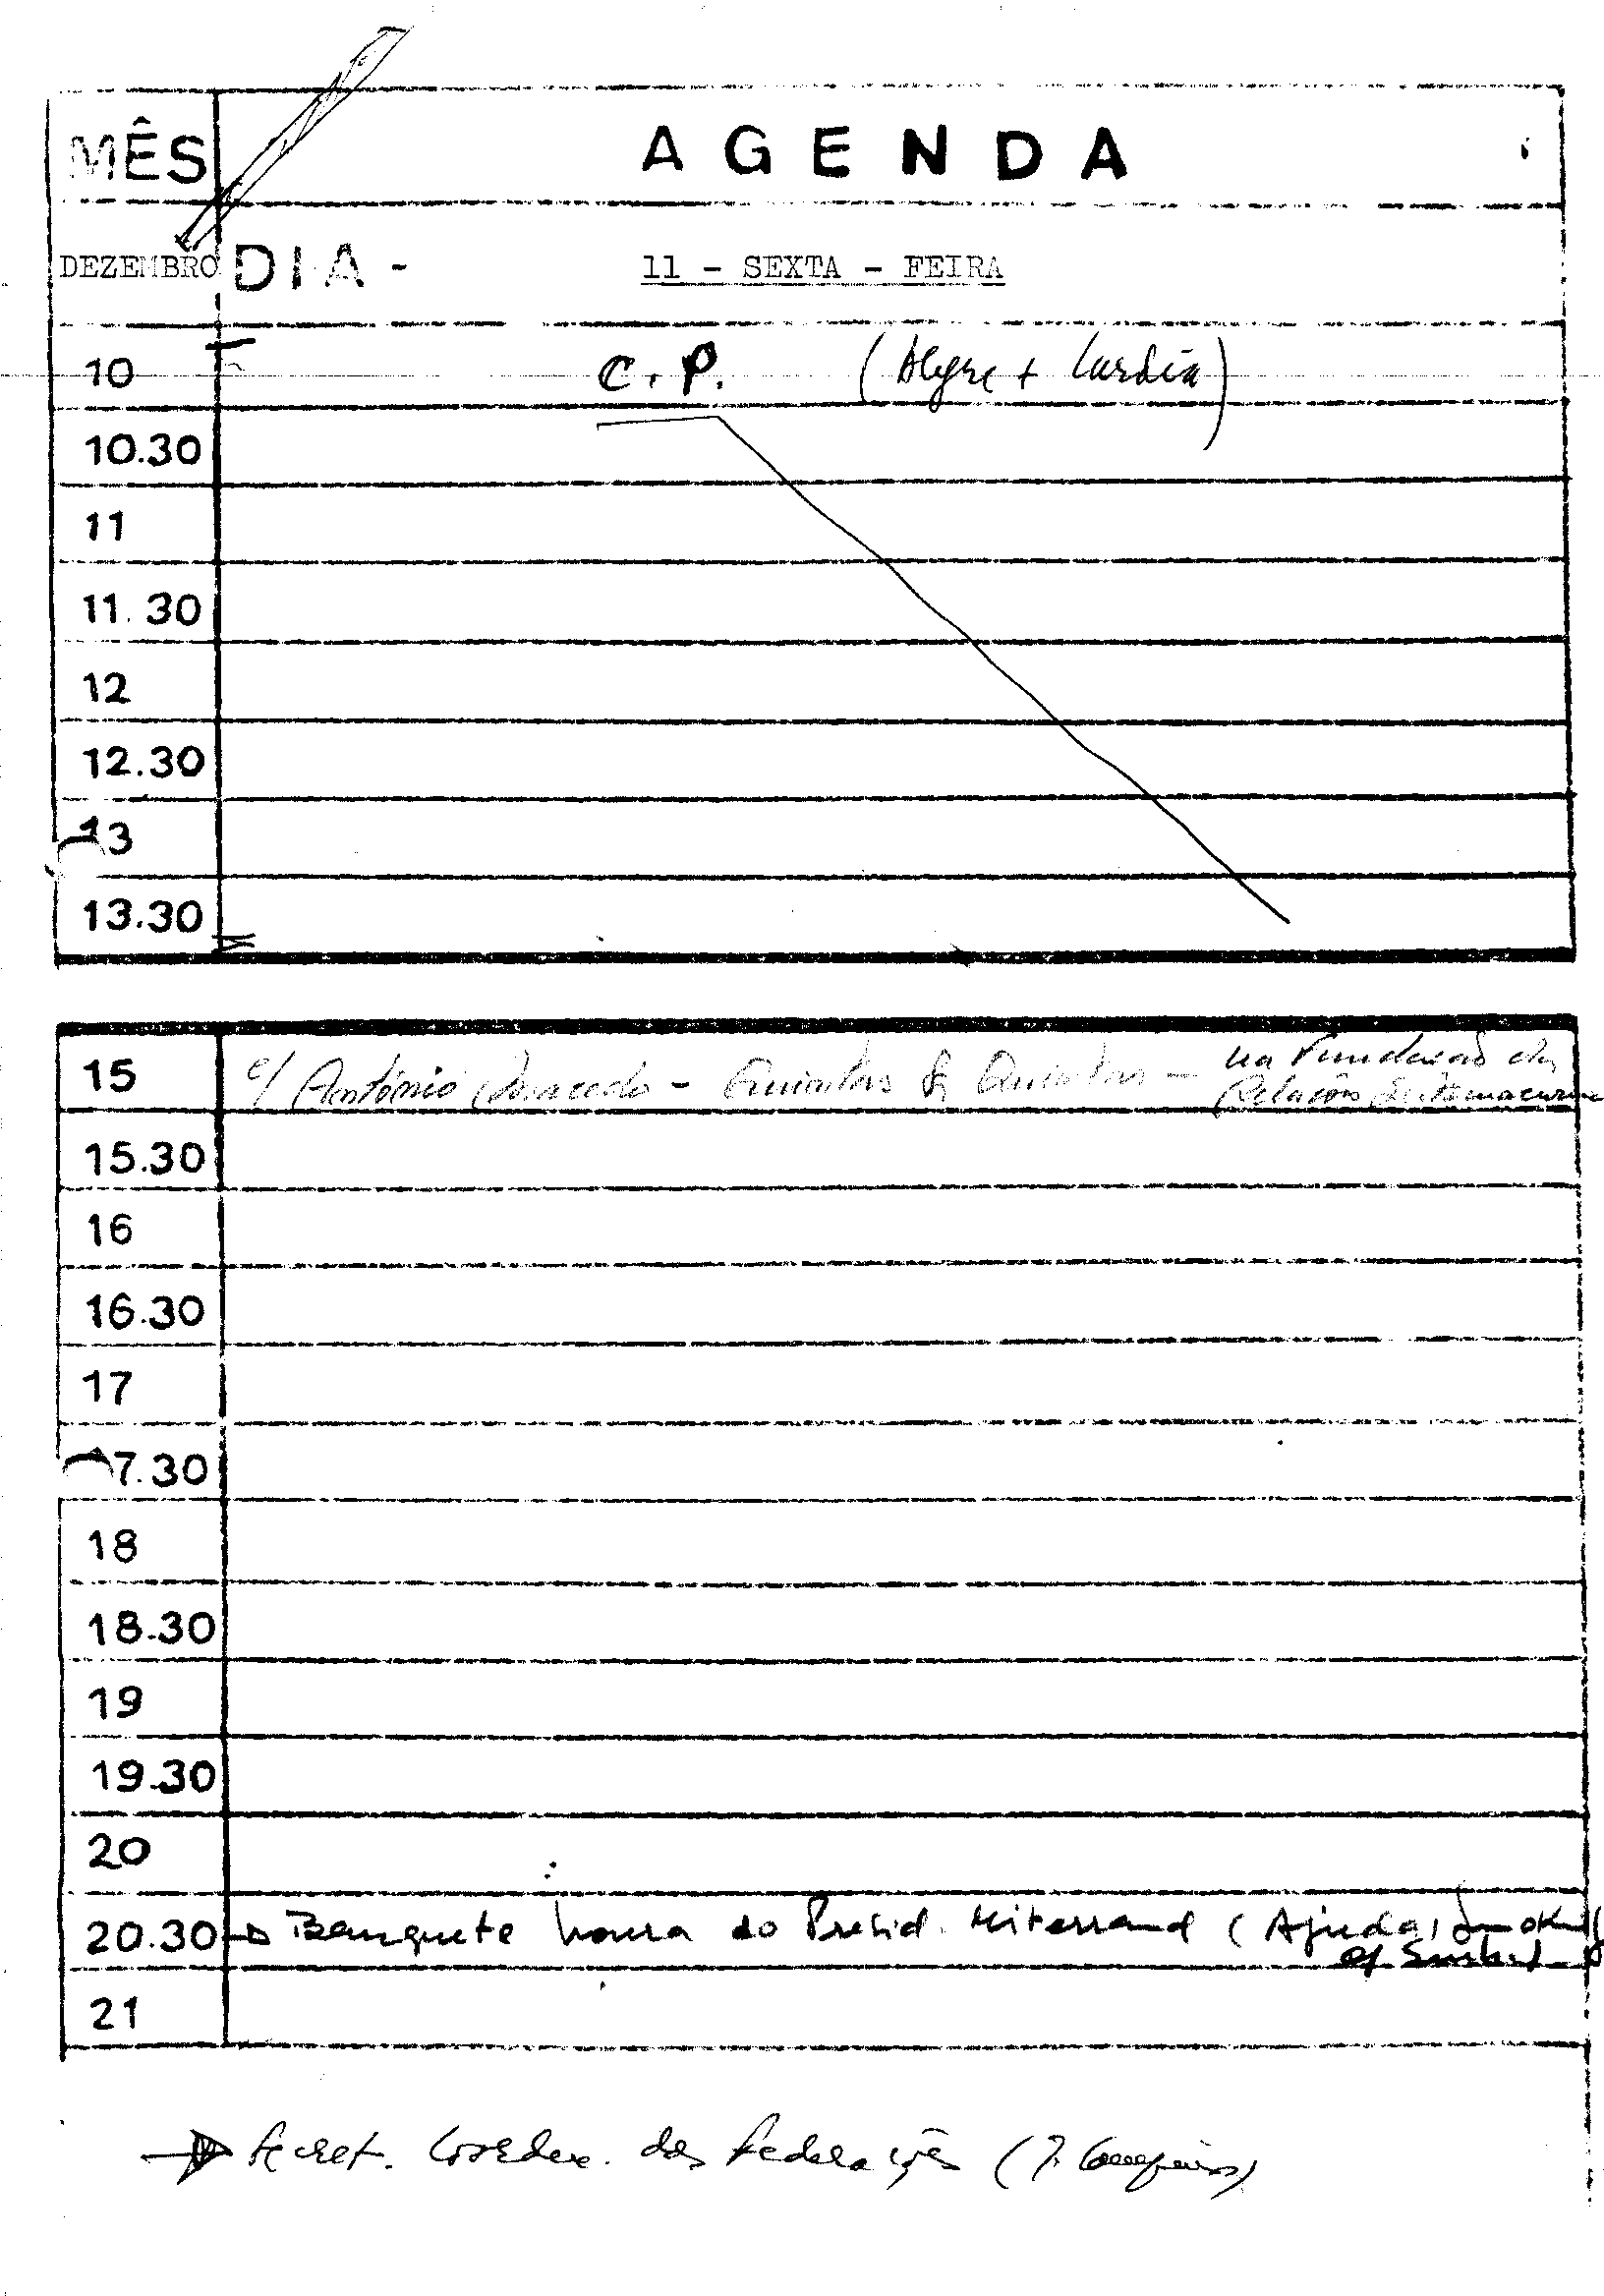 MÊS AGENDA
DEZEMBRO DIA - 11 - SEXTA - FEIRA
10 C. P. (Alegre + Cardia)
10.30
11
11.30
12
12.30
13
13.30
15 c/ António Macedo - Quintas & Quintas - na Fundação de
Relações Internacionais
15.30
16
16.30
17
17.30
18
18.30
19
19.30
20
20.30 Banquete honra do Presid. Miterrand (Ajuda,
21
Secret. Coorden. das Federações (